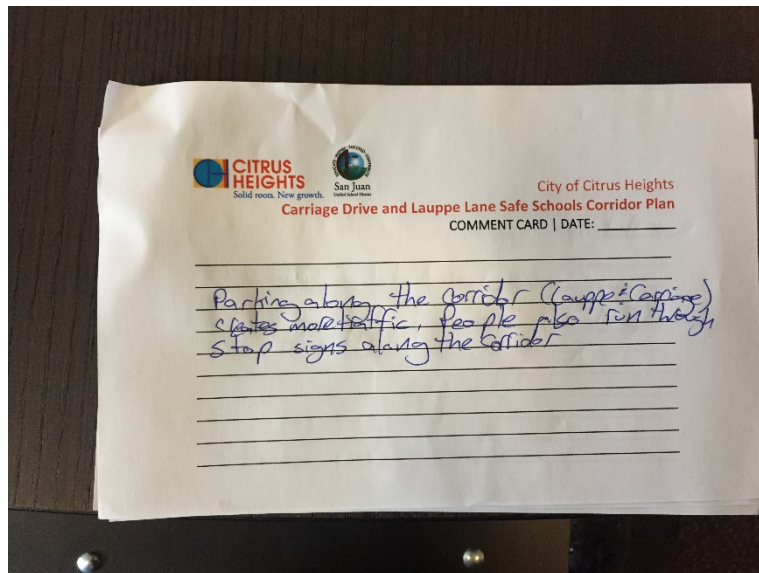 CITRUS
HEIGHTS
Solid roots. New growth.
San Juan
Unified School District
City of Citrus Heights
Carriage Drive and Lauppe Lane Safe Schools Corridor Plan
COMMENT CARD | DATE:
Parking along the corridor (Lauppe & Carriage)
creates more traffic, People also run through
stop signs along the corridor